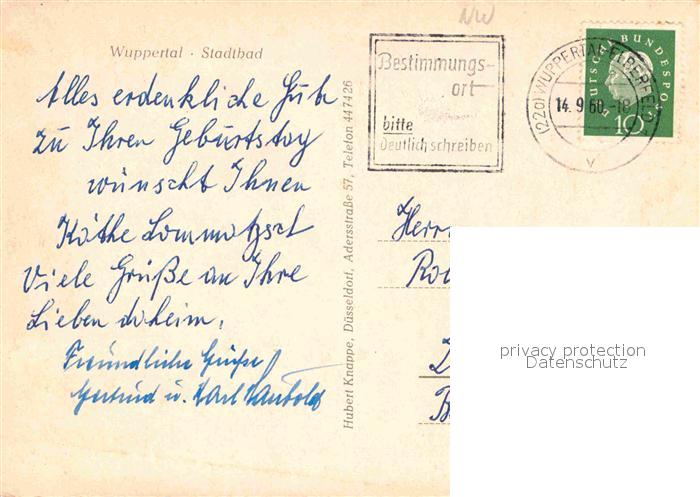 NW
Wuppertal · Stadtbad
Alles erdenkliche Gute
zu Ihren Geburtstag
wünscht Ihnen
Käthe Lommatzsch
Viele Grüße an Ihre
Lieben daheim.
Freundliche Grüße
Gertrud u. Karl
Hubert Knappe, Düsseldorf, Adersstraße 57, Telefon 447426
Bestimmungs-
ort
bitte
deutlich schreiben
(22a) WUPPERTAL-ELBERFELD
14.9.60.-18
v
DEUTSCHE BUNDESPOST
10
Herrn
privacy protection
Datenschutz